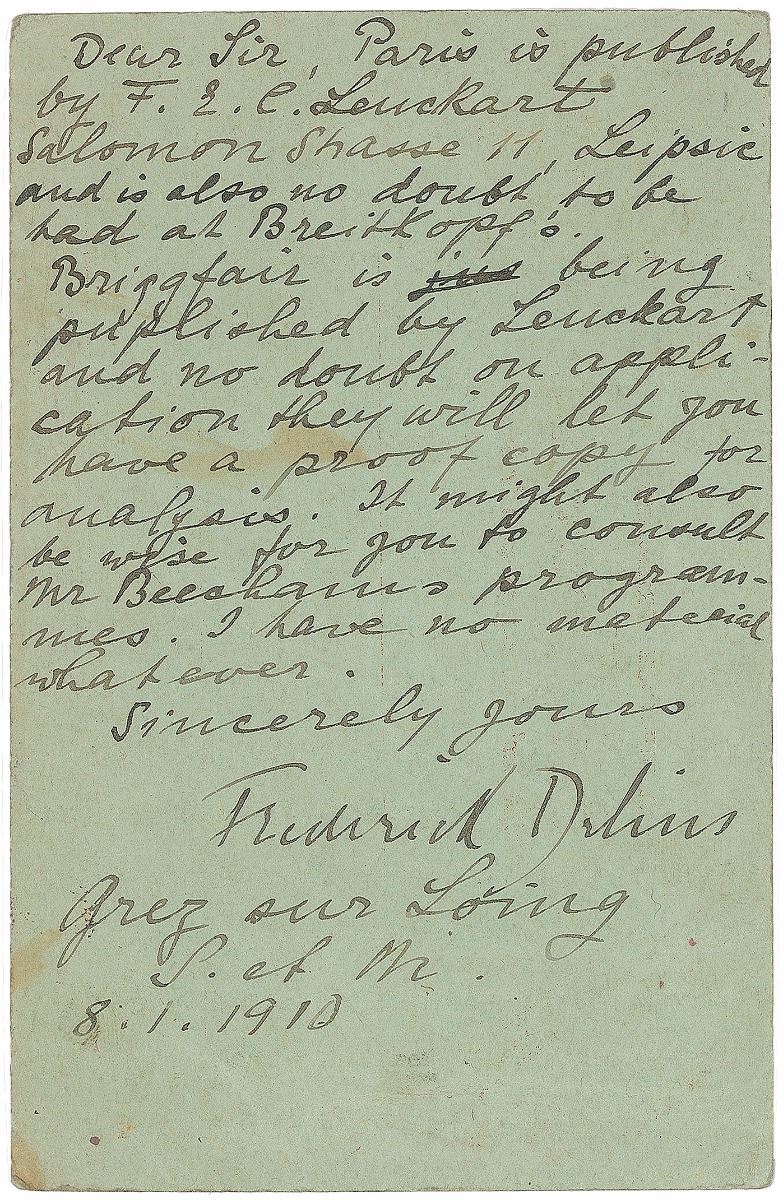 Dear Sir, Paris is published
by F. E. C. Leuckart
Salomon Strasse 11, Leipsic
and is also no doubt to be
had at Breitkopf's.
Briggfair is being
puplished by Leuckart
and no doubt on appli-
cation they will let you
have a proof copy for
analysis. It might also
be wise for you to consult
Mr Beechams program-
mes. I have no material
whatever.
Sincerely yours
Frederick Delius
Grez sur Loing
S. et M.
8.1.1910